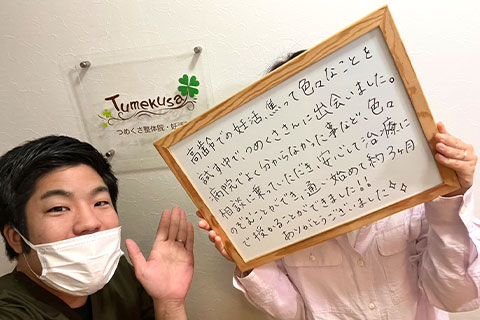 Tumekusa
つめくさ整体院・妊活
高齢での妊活、焦って色々なことを
試す中で、つめくささんに出会いました。
病院でよく分からなかった事など、色々
相談に乗っていただき、安心して治療に
のぞむことができ、通い始めて約3ヶ月
で授かることができました!!
ありがとうございました